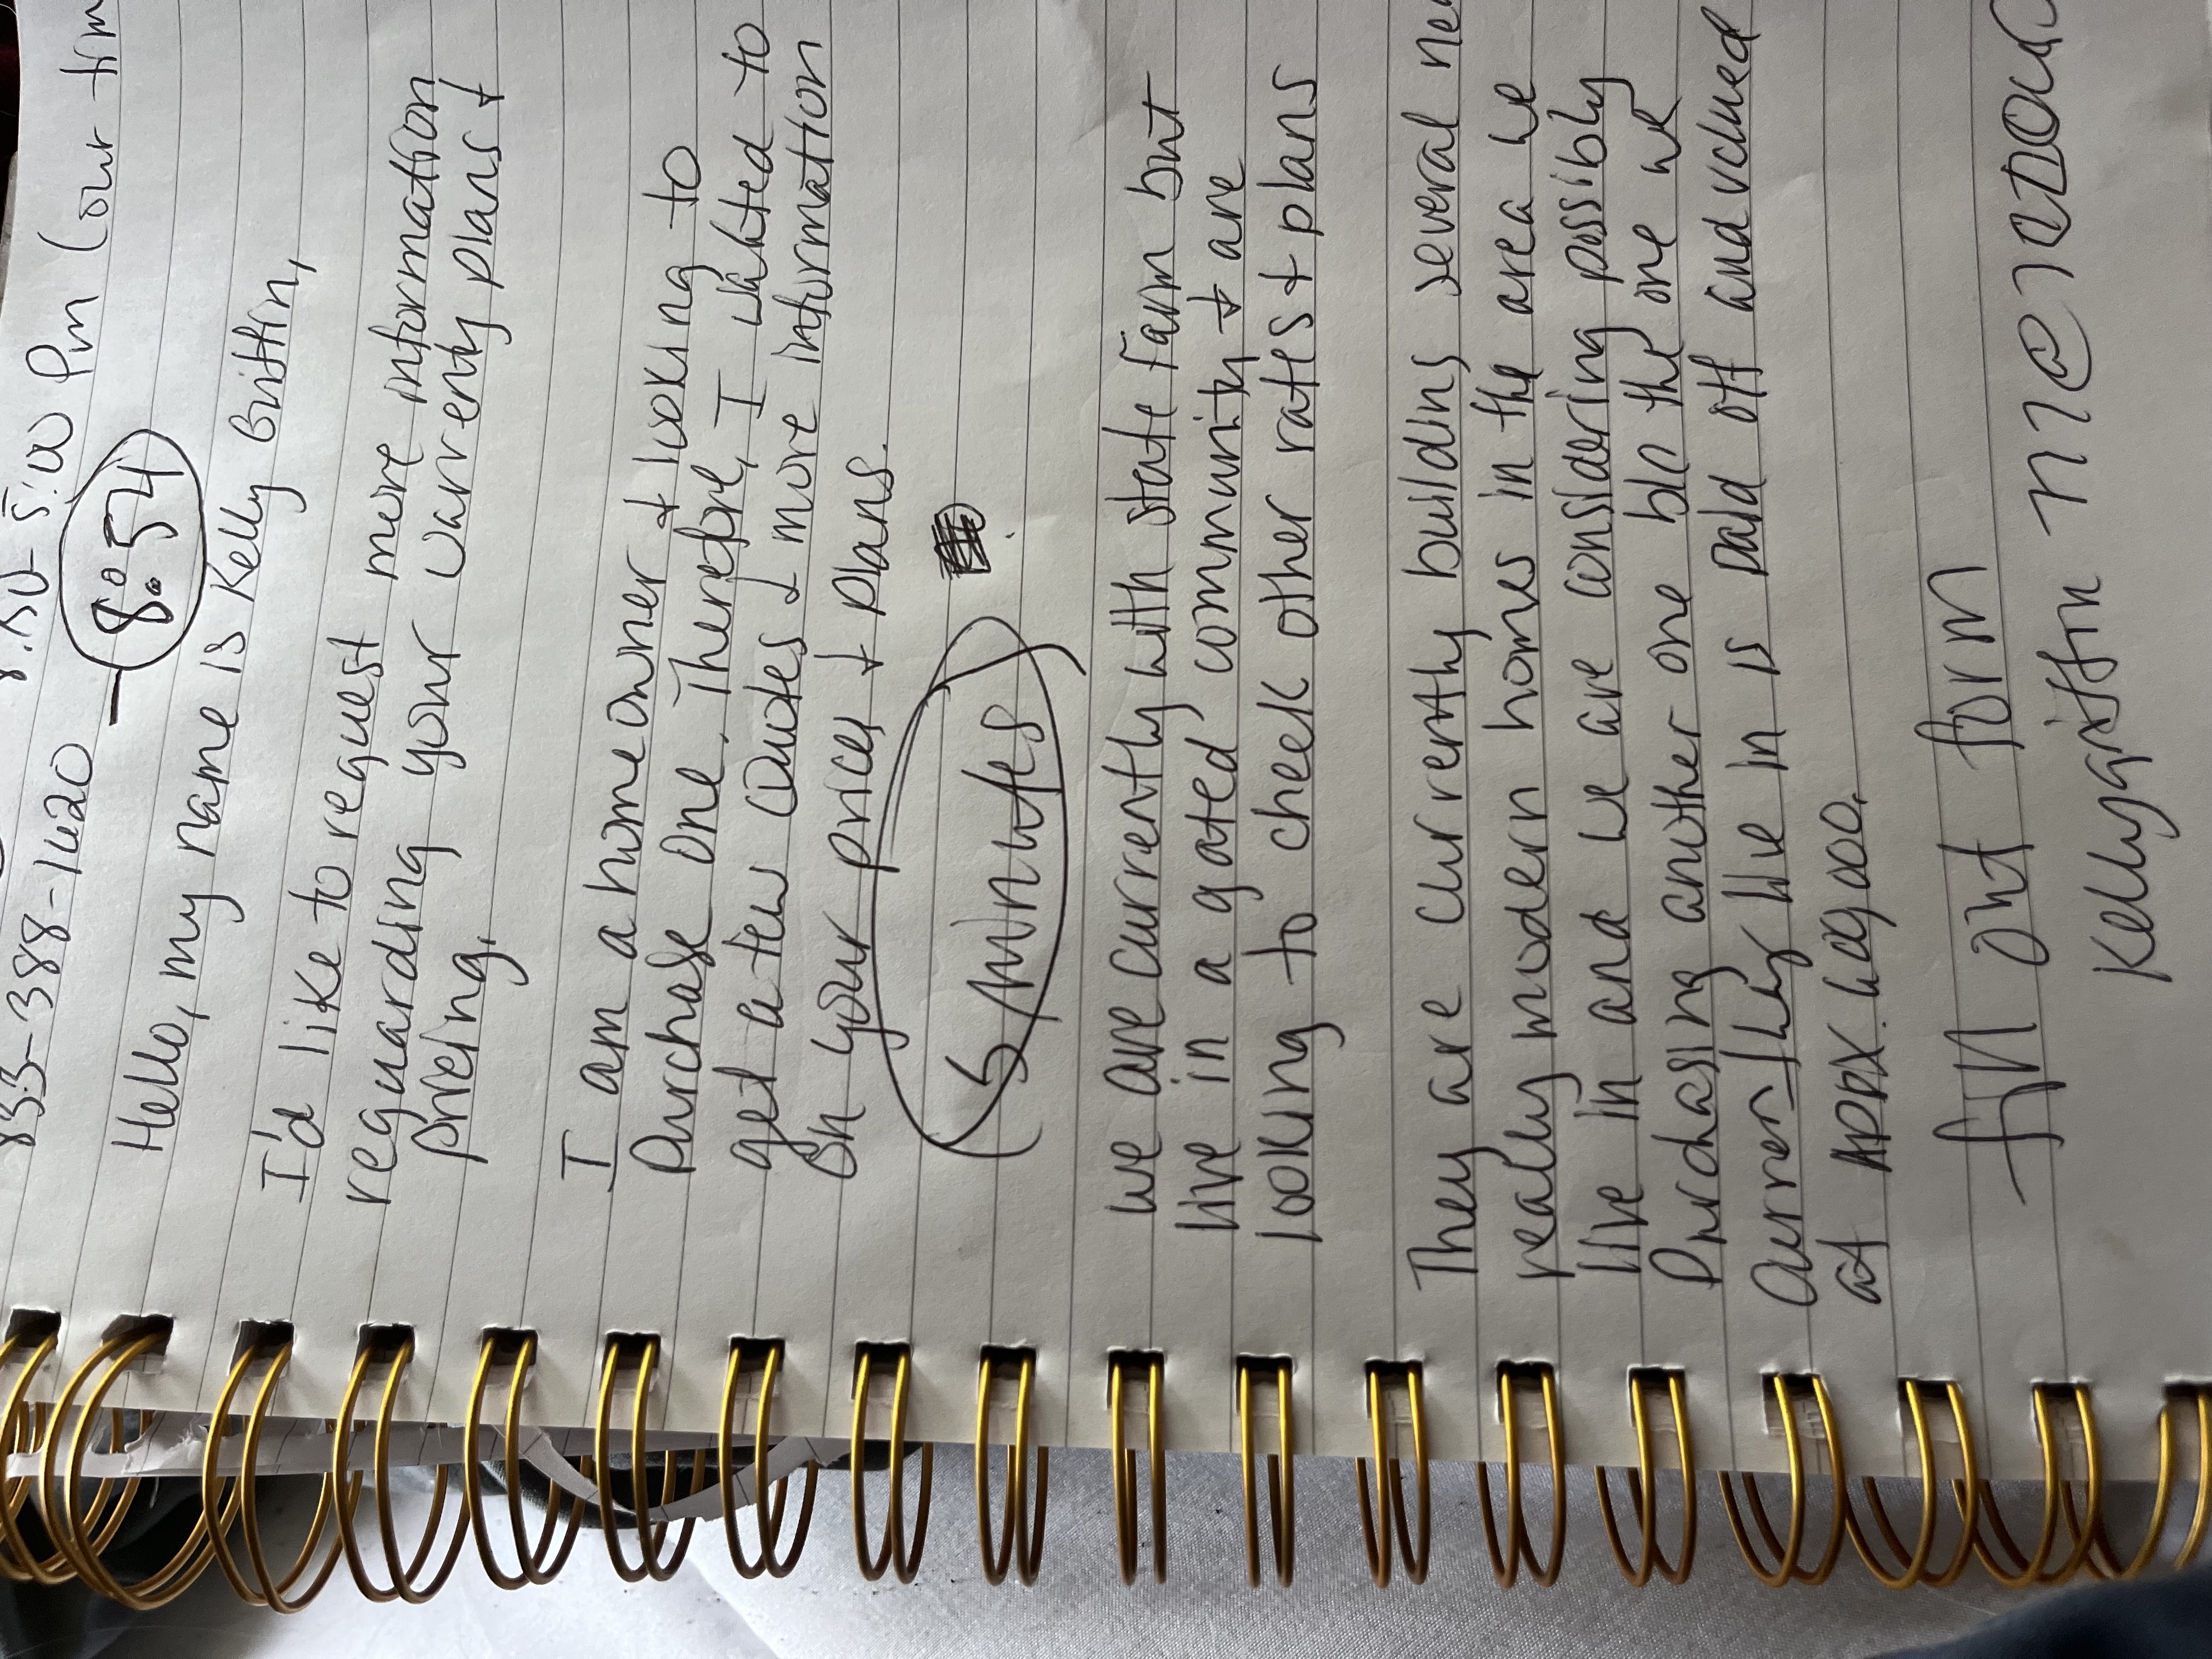 8:30 - 5:00 Pm (our tim
833-388-1620
8:54
Hello, my name is Kelly Griffin,
I'd like to request more information
reguarding your warrenty plans &
pricing.
I am a homeowner & looking to
purchase one. Therefore, I wanted to
get a few quotes & more information
on your prices & plans.
5 minutes
we are currently with state Farm but
live in a gated community & are
looking to check other rates & plans
They are currently building several ne
really modern homes in the area we
live in and we are considering possibly
Purchasing another one b/c the one we
currently live in is paid off and valued
at APPX.
fill out form
Kellygriffin